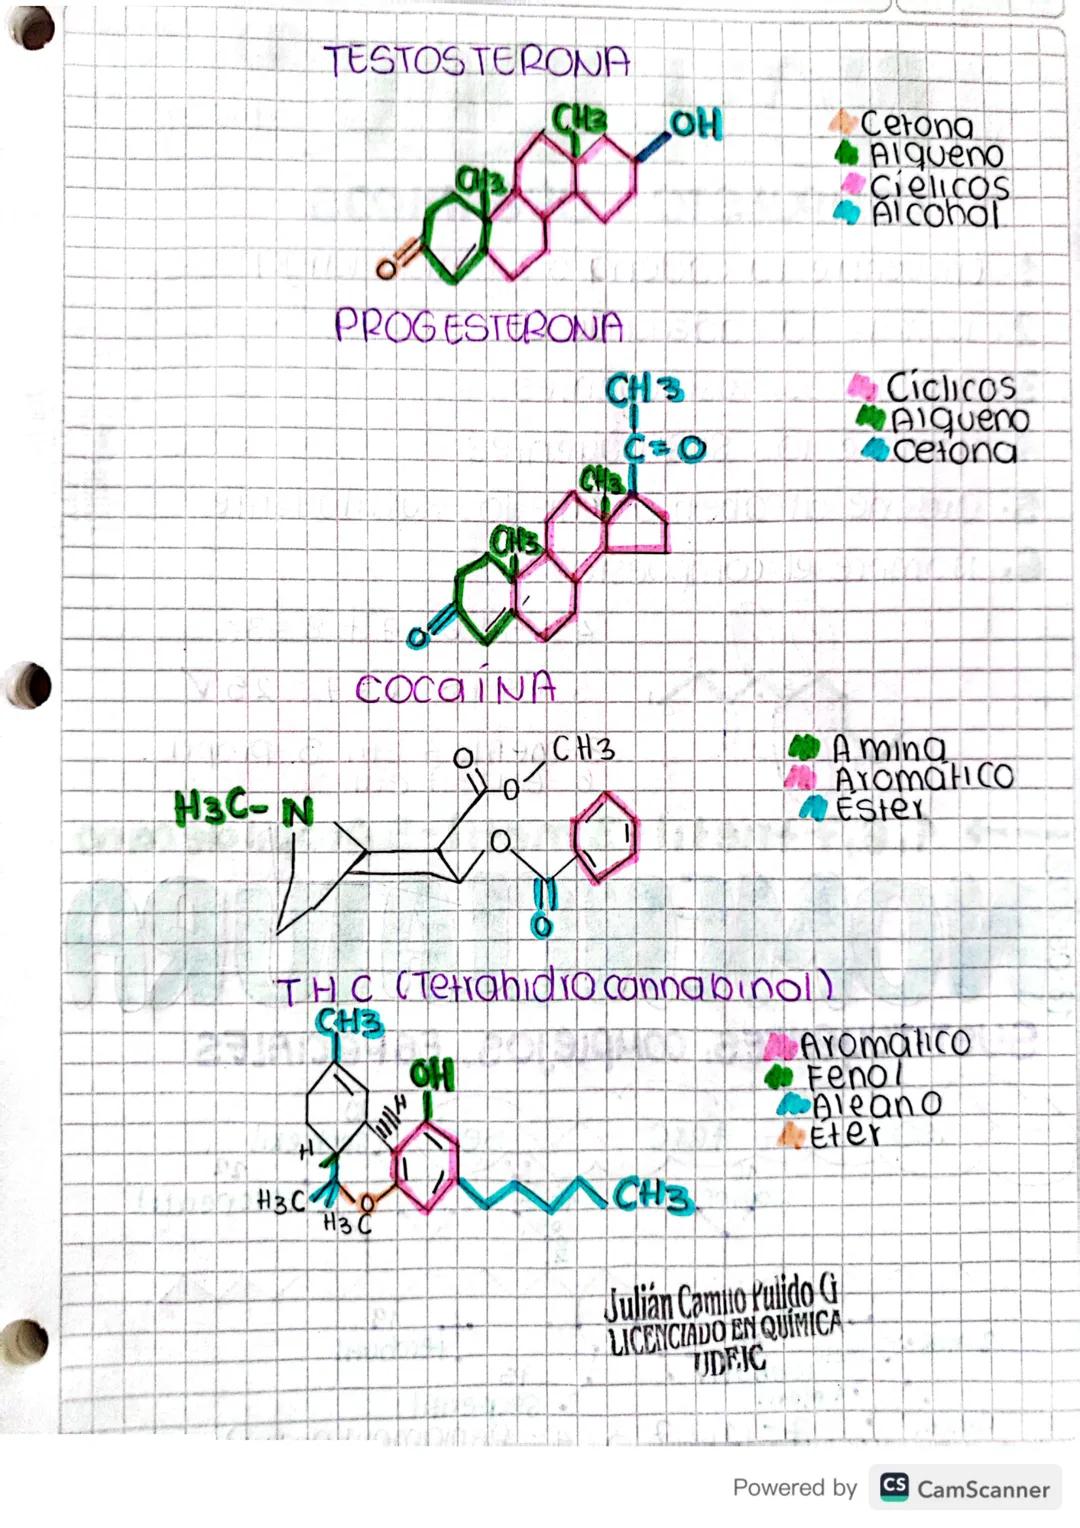 TESTOSTERONA
CH3
OH
CH3
O
Cetona
Alqueno
Cíclicos
Alcohol
PROGESTERONA
CH3
C=O
CH3
CH3
O
Cíclicos
Alqueno
Cetona
COCAÍNA
O
O
CH3
H3C-N
O
O
Amina
Aromático
Éster
THC (Tetrahidrocannabinol)
CH3
OH
H
H
H3C
O
H3C
CH3
Aromático
Fenol
Alcano
Eter
Julián Camilo Pulido G
LICENCIADO EN QUÍMICA
UDFJC
Powered by CS CamScanner